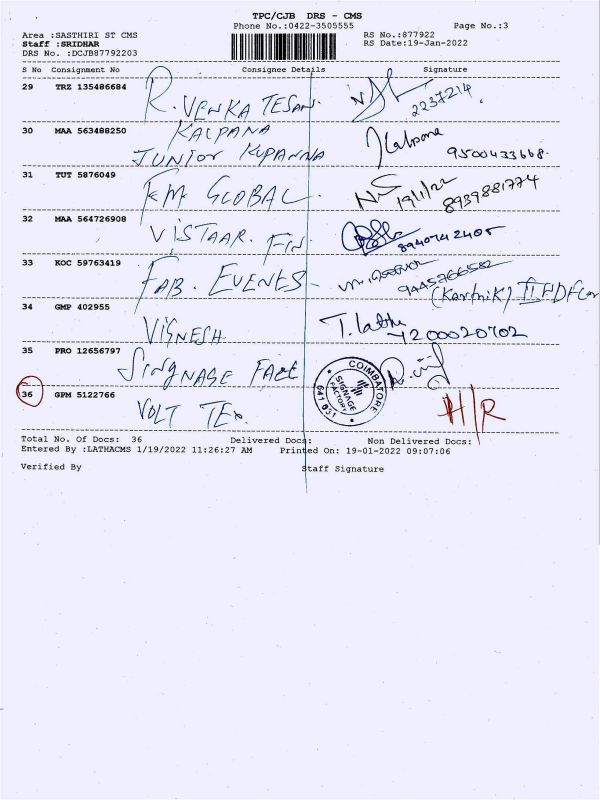 TPC/CJB DRS - CMS
Phone No.:0422-3505555 Page No.:3
Area :SASTHIRI ST CMS RS No.:877922
Staff :SRIDHAR RS Date:19-Jan-2022
DRS No. :DCJB87792203
S No Consignment No Consignee Details Signature
29 TRZ 135486684 R. VENKATESAN. 2237214
30 MAA 563488250 KALPANA
JUNIOR KUPANNA 9500433668
31 TUT 5876049 KM GLOBAL 19/1/22 8939881774
32 MAA 564726908 VISTAAR. FIN 8940742405
33 KOC 59763419 FAB. EVENTS 9445766582
(Karthik)
34 GMP 402955 VIGNESH T. Latha
7200020702
35 PRO 12656797 SINGNAGE FACE
COIMBATORE
SIGNAGE FACTORY
36 GPM 5122766 VOLT TEX H/R
Total No. Of Docs: 36 Delivered Docs: Non Delivered Docs:
Entered By :LATHACMS 1/19/2022 11:26:27 AM Printed On: 19-01-2022 09:07:06
Verified By Staff Signature